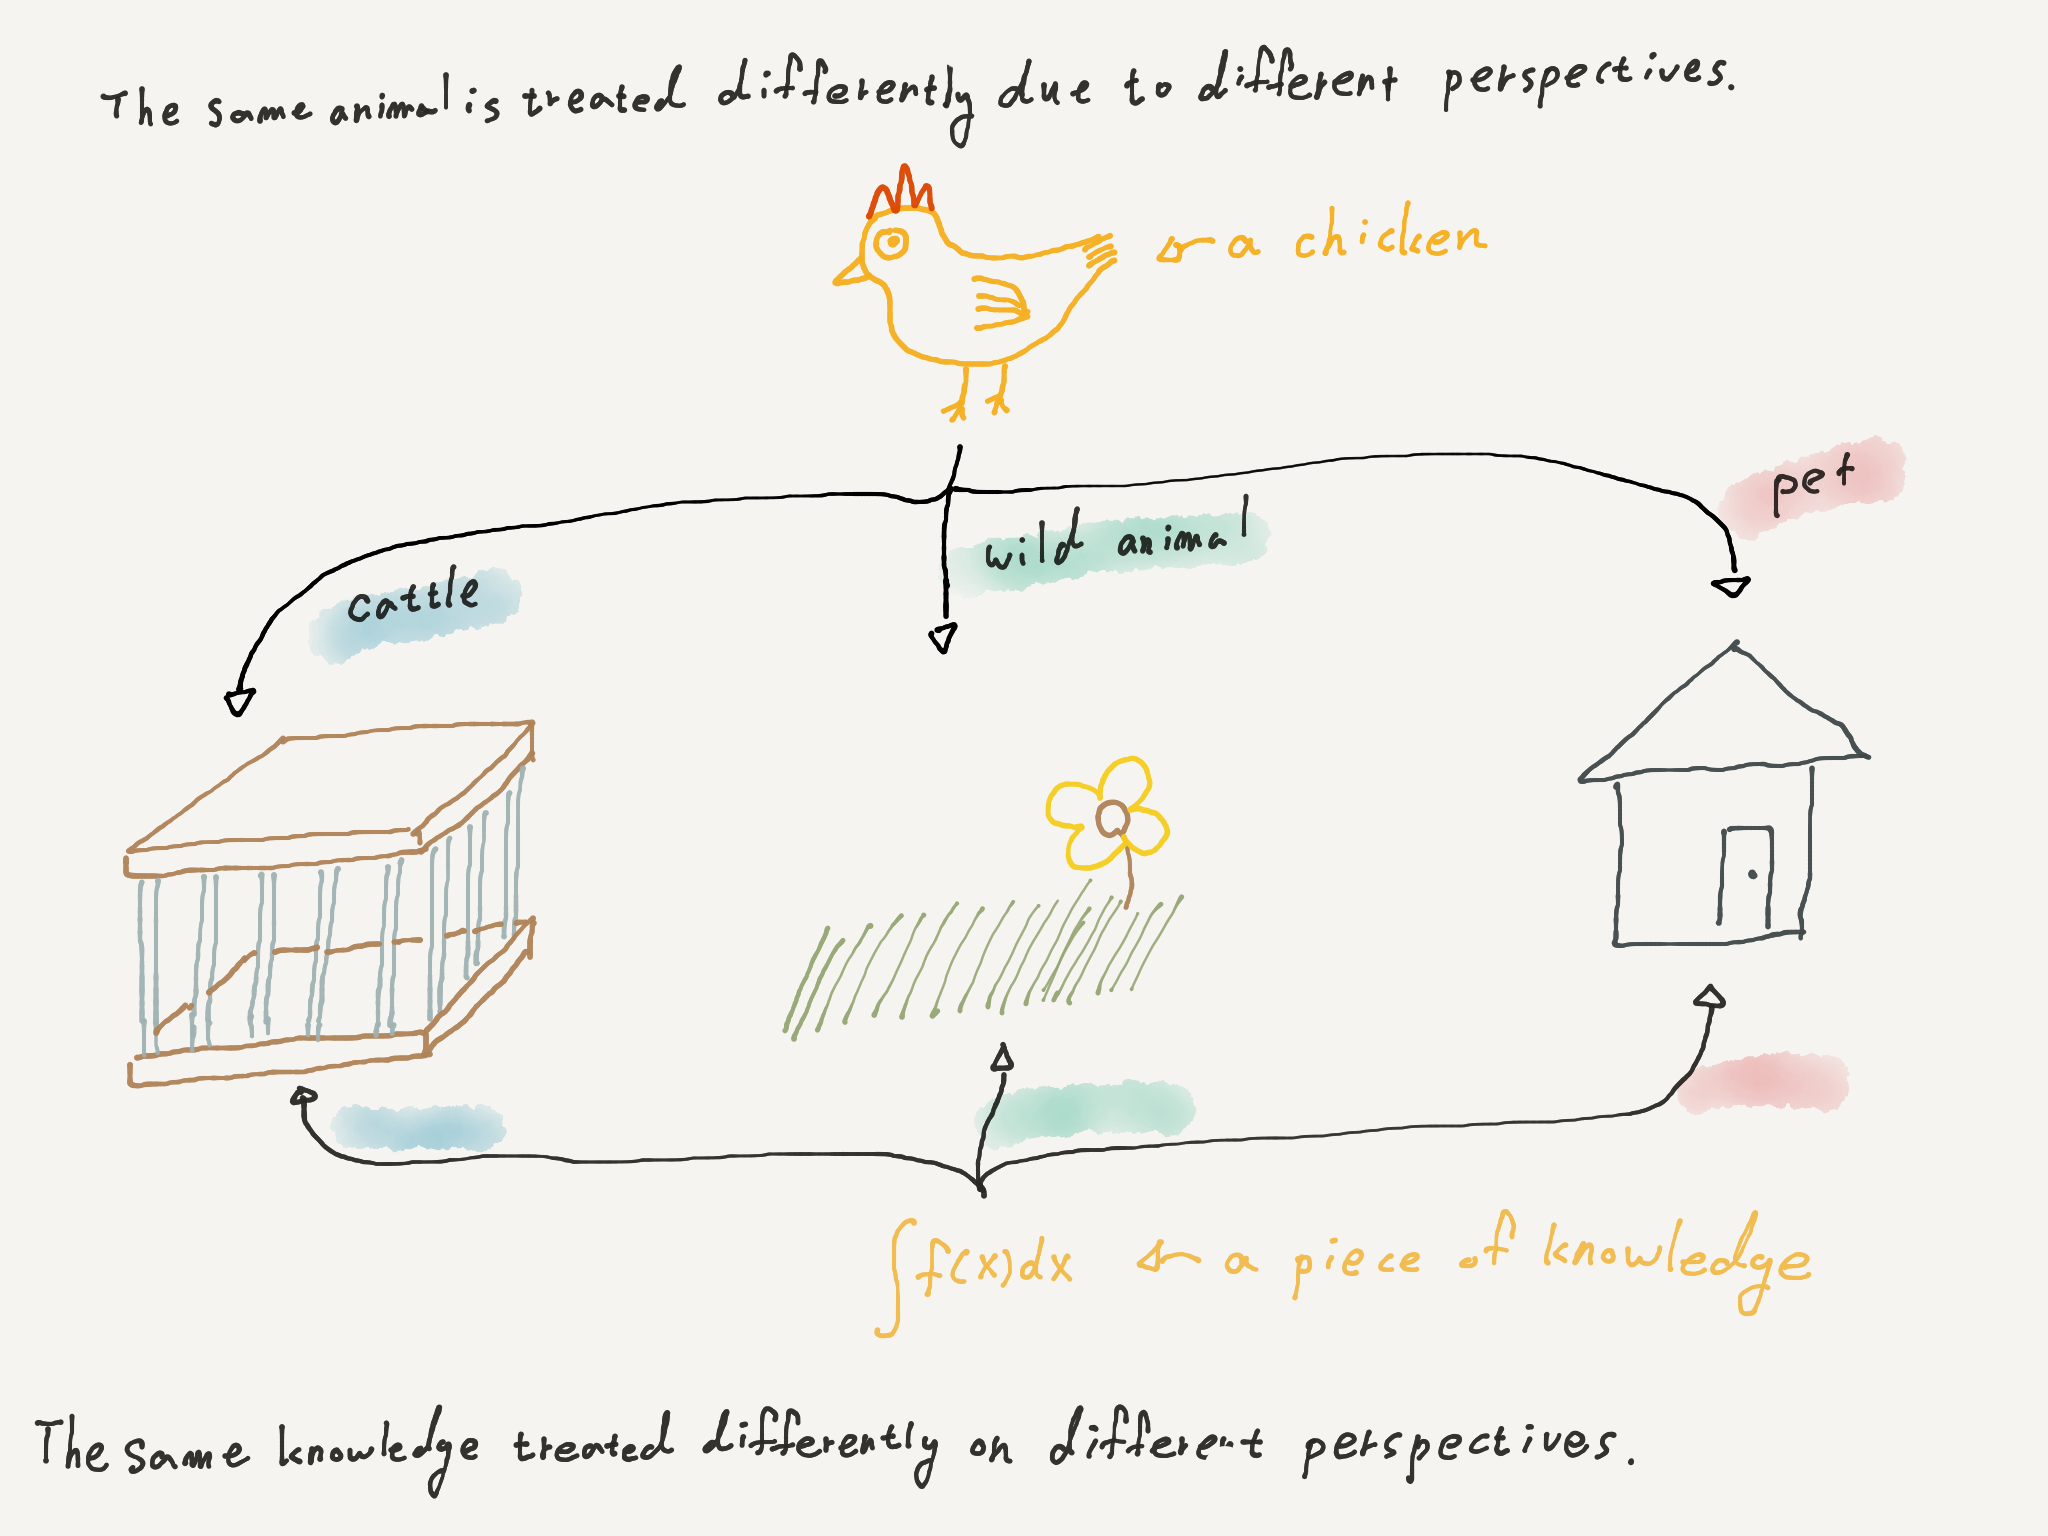 The same animal is treated differently due to different perspectives.
a chicken
pet
wild animal
cattle
∫f(x)dx a piece of knowledge
The same knowledge treated differently on different perspectives.